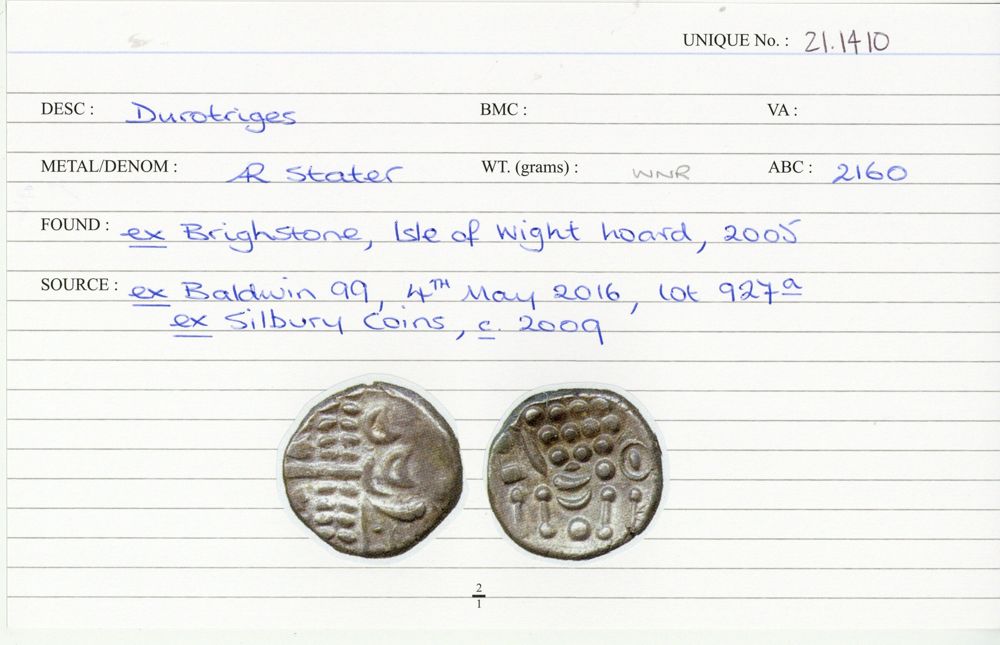 UNIQUE No. : 21.1410
DESC : Durotriges BMC : VA :
METAL/DENOM : AR Stater WT. (grams) : WNR ABC : 2160
FOUND : ex Brighstone, Isle of Wight hoard, 2005
SOURCE : ex Baldwin 99, 4TH May 2016, lot 927a
ex Silbury Coins, c. 2009
2
1